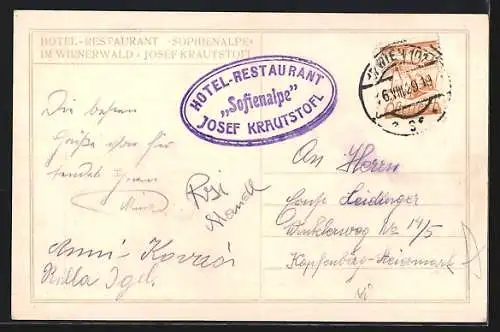 HOTEL-RESTAURANT ·SOPHIENALPE·
IM WIENERWALD · JOSEF KRAUTSTOFL
HOTEL-RESTAURANT
„Sofienalpe"
JOSEF KRAUTSTOFL
WIEN 102
6.VIII.20 19
Die besten
Grüße von hier
sendet Ihnen
Mina
Anni Kovács
Rosi
An Herrn
Leidinger
Winklerweg No 14/5
Kapfenberg-Steiermark